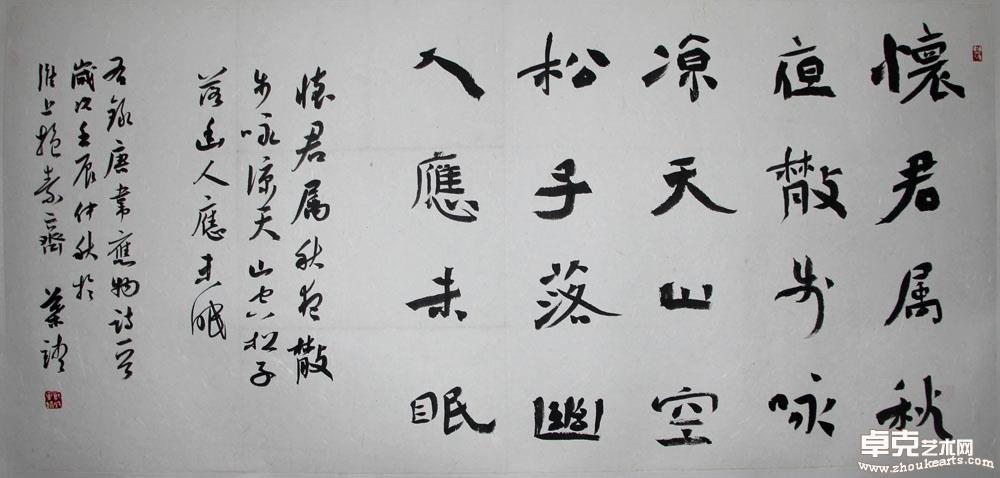 懷君属秋
夜散步咏
涼天山空
松子落幽
人應未眠
懷君属秋夜散
步咏涼天山空松子
落幽人應未眠
右錄唐韋應物詩一首
歲次壬辰仲秋於
淮上抱素齋
卓克艺术网
www.zhoukearts.com